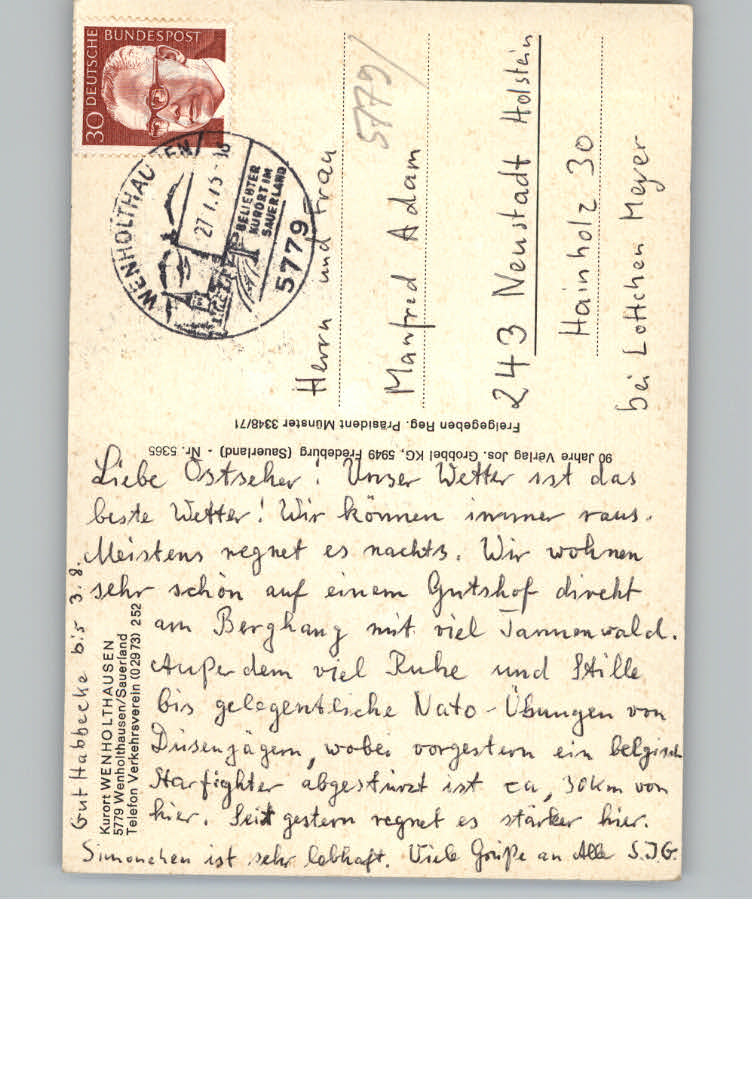 DEUTSCHE BUNDESPOST
30
WENHOLTHAUSEN
27.7.73-16
BELIEBTER
KURORT IM
SAUERLAND
5779
5779/
Herrn und Frau
Manfred Adam
243 Neustadt Holstein
Hainholz 30
bei Lottchen Meyer
Freigegeben Reg. Präsident Münster 3348/71
90 Jahre Verlag Jos. Grobbel KG, 5949 Fredeburg (Sauerland) - Nr. 5365
Liebe Ostseher! Unser Wetter ist das
beste Wetter! Wir können immer raus.
Meistens regnet es nachts. Wir wohnen
sehr schön auf einem Gutshof direkt
am Berghang mit viel Tannenwald.
Außerdem viel Ruhe und Stille
bis gelegentliche Nato-Übungen von
Düsenjägern, wobei vorgestern ein belgisch
Starfighter abgestürzt ist ca. 30km von
hier. Seit gestern regnet es stärker hier.
Simonchen ist sehr lebhaft. Viele Grüße an Alle S.J.G.
Gut Habbecke bis 3.8.
Kurort WENHOLTHAUSEN
5779 Wenholthausen/Sauerland
Telefon Verkehrsverein (02973) 252